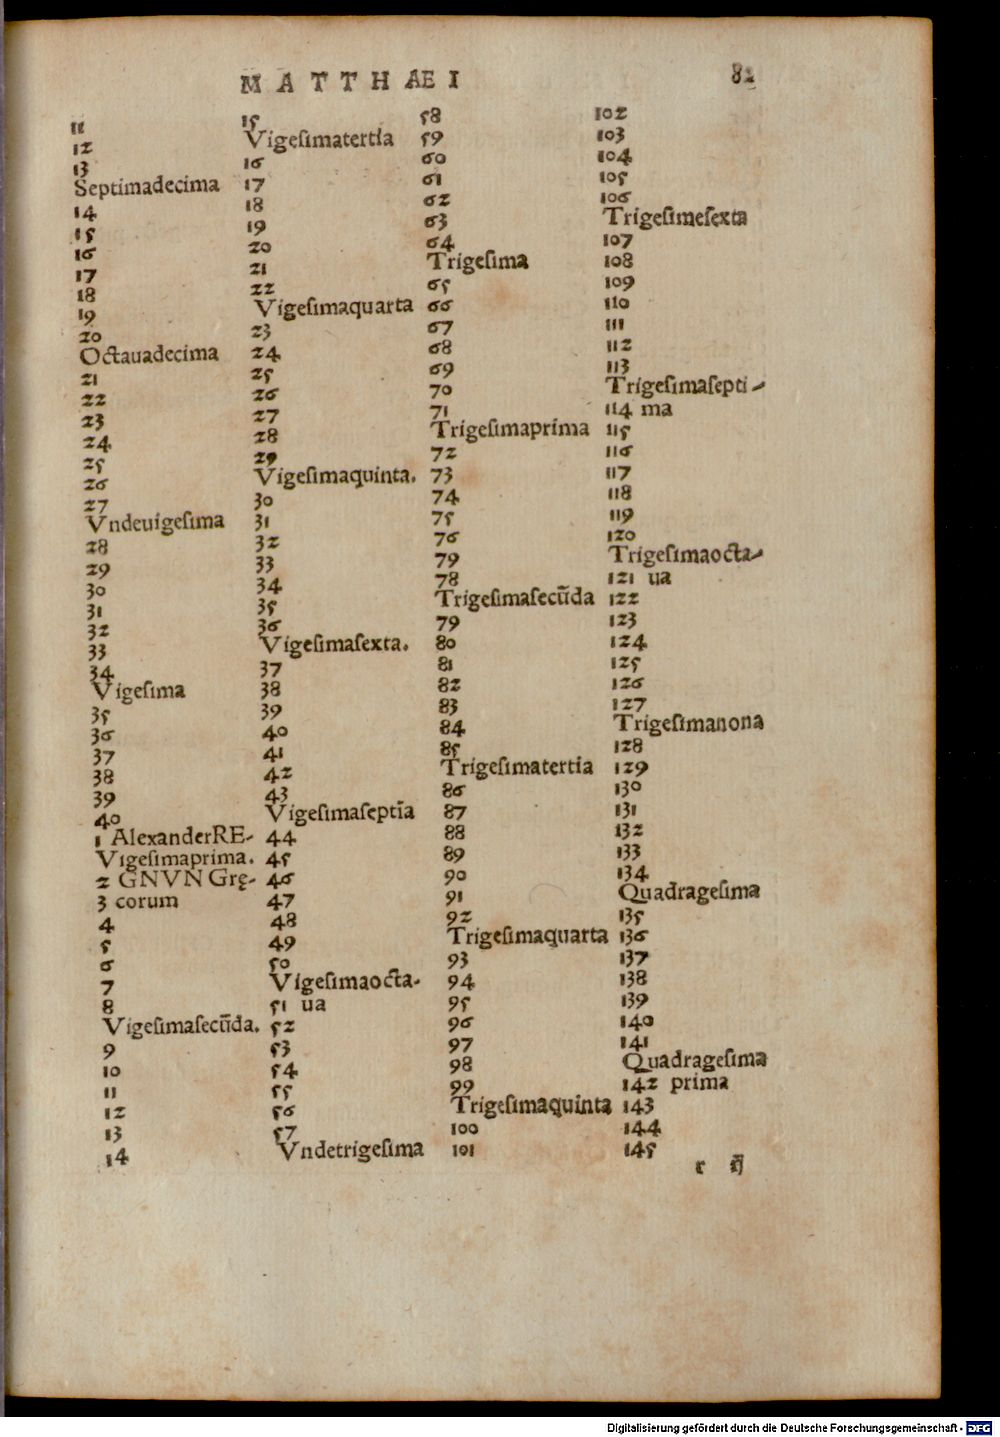 MATTHAEI 82
11
12
13
Septimadecima
14
15
16
17
18
19
20
Octauadecima
21
22
23
24
25
26
27
Vndeuigesima
28
29
30
31
32
33
34
Vigesima
35
36
37
38
39
40
1 AlexanderRE-
Vigesimaprima.
2 GNVN Grę-
3 corum
4
5
6
7
8
Vigesimasecūda.
9
10
11
12
13
14
15
Vigesimatertia
16
17
18
19
20
21
22
Vigesimaquarta
23
24
25
26
27
28
29
Vigesimaquinta.
30
31
32
33
34
35
36
Vigesimasexta.
37
38
39
40
41
42
43
Vigesimaseptīa
44
45
46
47
48
49
50
Vigesimaocta-
51 ua
52
53
54
55
56
57
Vndetrigesima
58
59
60
61
62
63
64
Trigesima
65
66
67
68
69
70
71
Trigesimaprima
72
73
74
75
76
79
78
Trigesimasecūda
79
80
81
82
83
84
85
Trigesimatertia
86
87
88
89
90
91
92
Trigesimaquarta
93
94
95
96
97
98
99
Trigesimaquinta
100
101
102
103
104
105
106
Trigesimesexta
107
108
109
110
111
112
113
Trigesimasepti-
114 ma
115
116
117
118
119
120
Trigesimaocta-
121 ua
122
123
124
125
126
127
Trigesimanona
128
129
130
131
132
133
134
Quadragesima
135
136
137
138
139
140
141
Quadragesima
142 prima
143
144
145
r
Digitalisierung gefördert durch die Deutsche Forschungsgemeinschaft - DFG